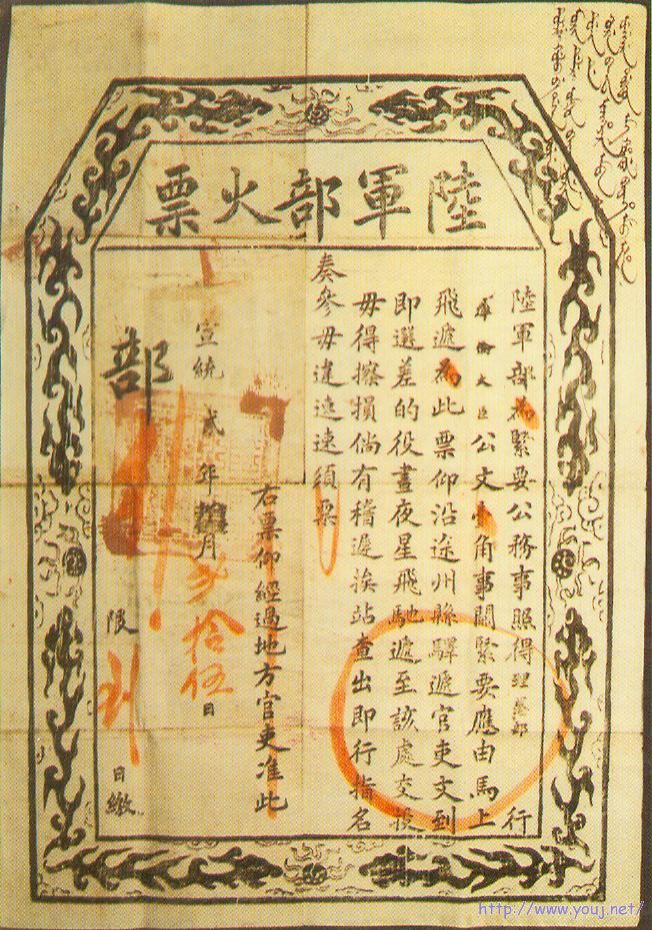 陸軍部火票
陸軍部為緊要公務事照得理藩部行
庫倫大臣公文壹角事關緊要應由馬上
飛遞為此票仰沿途州縣驛遞官吏文到
即選差的役晝夜星飛馳遞至該處交投
毋得擦損倘有稽遲挨站查出即行指名
奏參毋違速速須票
右票仰經過地方官吏准此
宣統貳年月貳拾伍日
部
限日繳
http://www.youj.net/